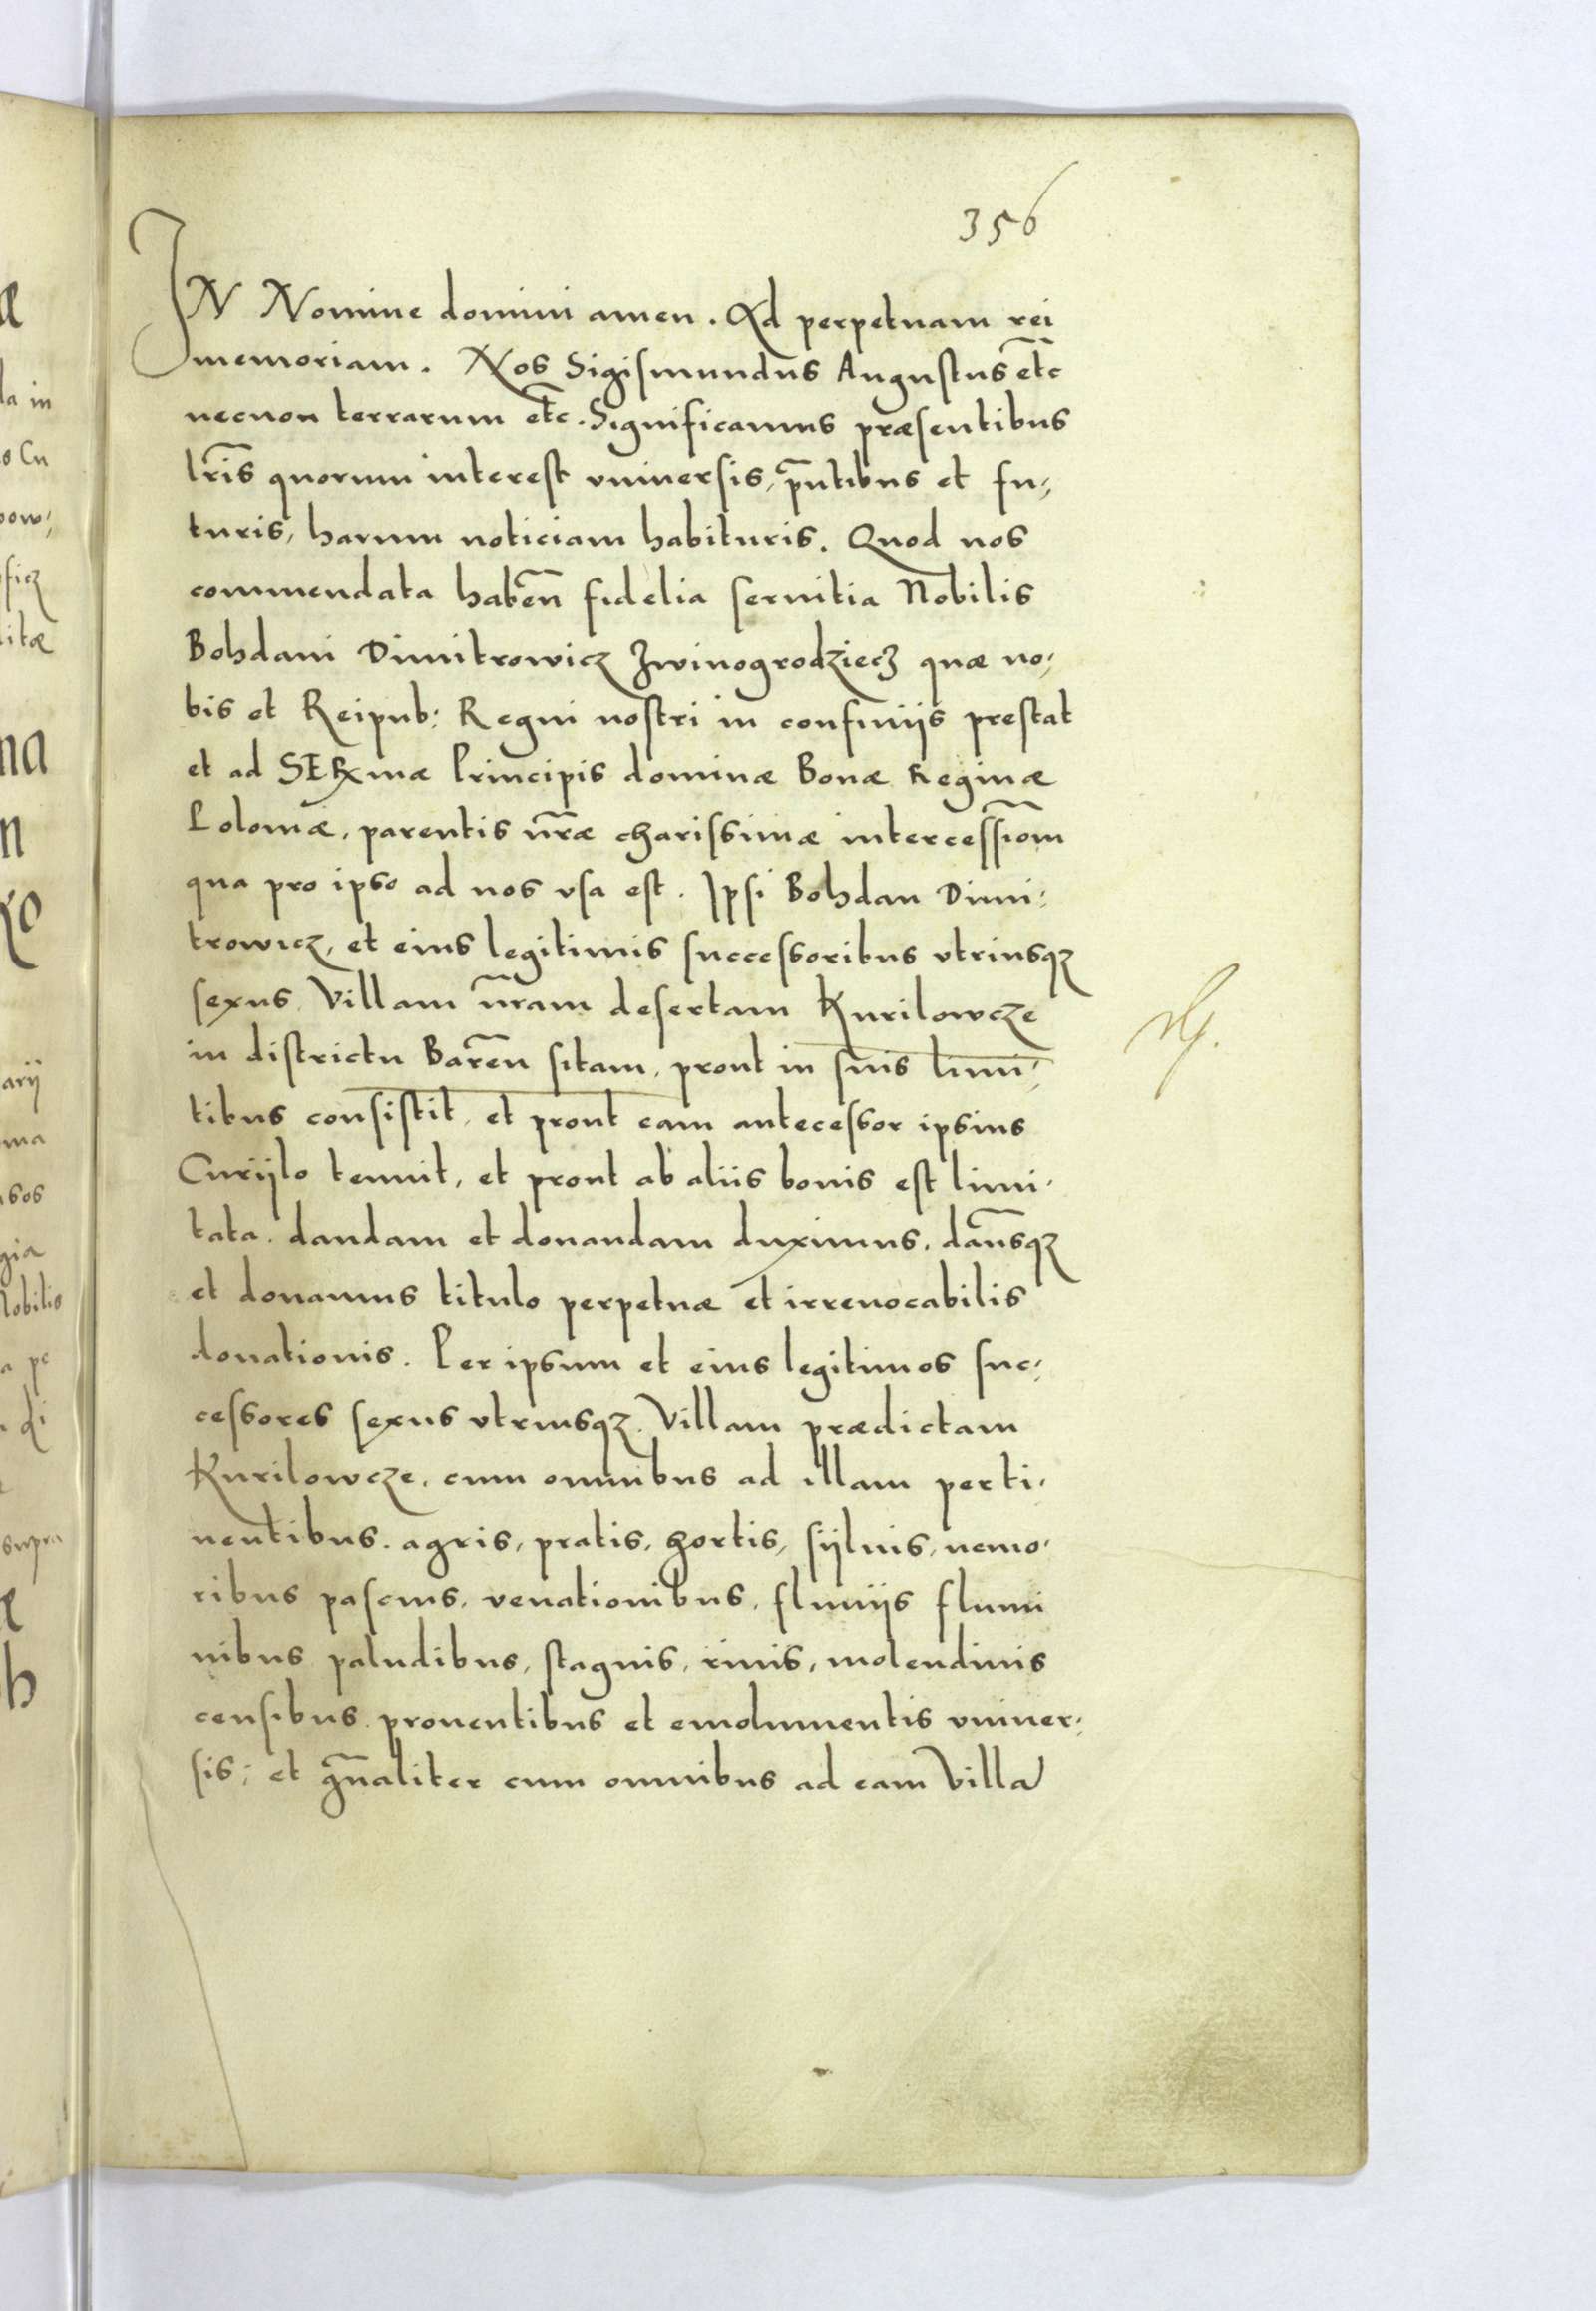 356
IN Nomine domini amen. Ad perpetuam rei
memoriam. Nos Sigismundus Augustus etc̃
necnon terrarum etc̃. Significamus præsentibus
lr̃is quorum interest vniuersis, pñtibus et fu-,
turis, harum noticiam habituris. Quod nos
commendata habeñ fidelia seruitia Nobilis
Bohdani Dimitrowicz Zwinogrodziecz quæ no-,
bis et Reipub: Regni nostri in confinijs prestat
et ad SERmæ Principis dominæ Bonæ Reginæ
Poloniæ, parentis nr̃æ charissimæ intercessiom̃
qua pro ipso ad nos vsa est. Ipsi Bohdan Dimi-
trowicz, et eius legitimis successoribus vtriusqz
sexus Villam nr̃am desertam Kurilowcze
in districtu Bareñ sitam, prout in suis limi-,
tibus consistit, et prout eam antecessor ipsius
Curÿlo tenuit, et prout ab aliis bonis est limi-
tata. dandam et donandam duximus, dam̃sqz
et donamus titulo perpetuæ et irreuocabilis
donationis. Per ipsum et eius legitimos suc-,
cessores sexus vtriusqz. Villam prædictam
Kurilowcze, cum omnibus ad illam perti-
nentibus. agris, pratis, hortis, sÿluis, nemo-
ribus pascuis, venationibus, fluuijs flumi
nibus paludibus, stagnis, riuis, molendinis
censibus prouentibus et emolumentis vniuer-,
sis; et gñaliter cum omnibus ad eam Villa